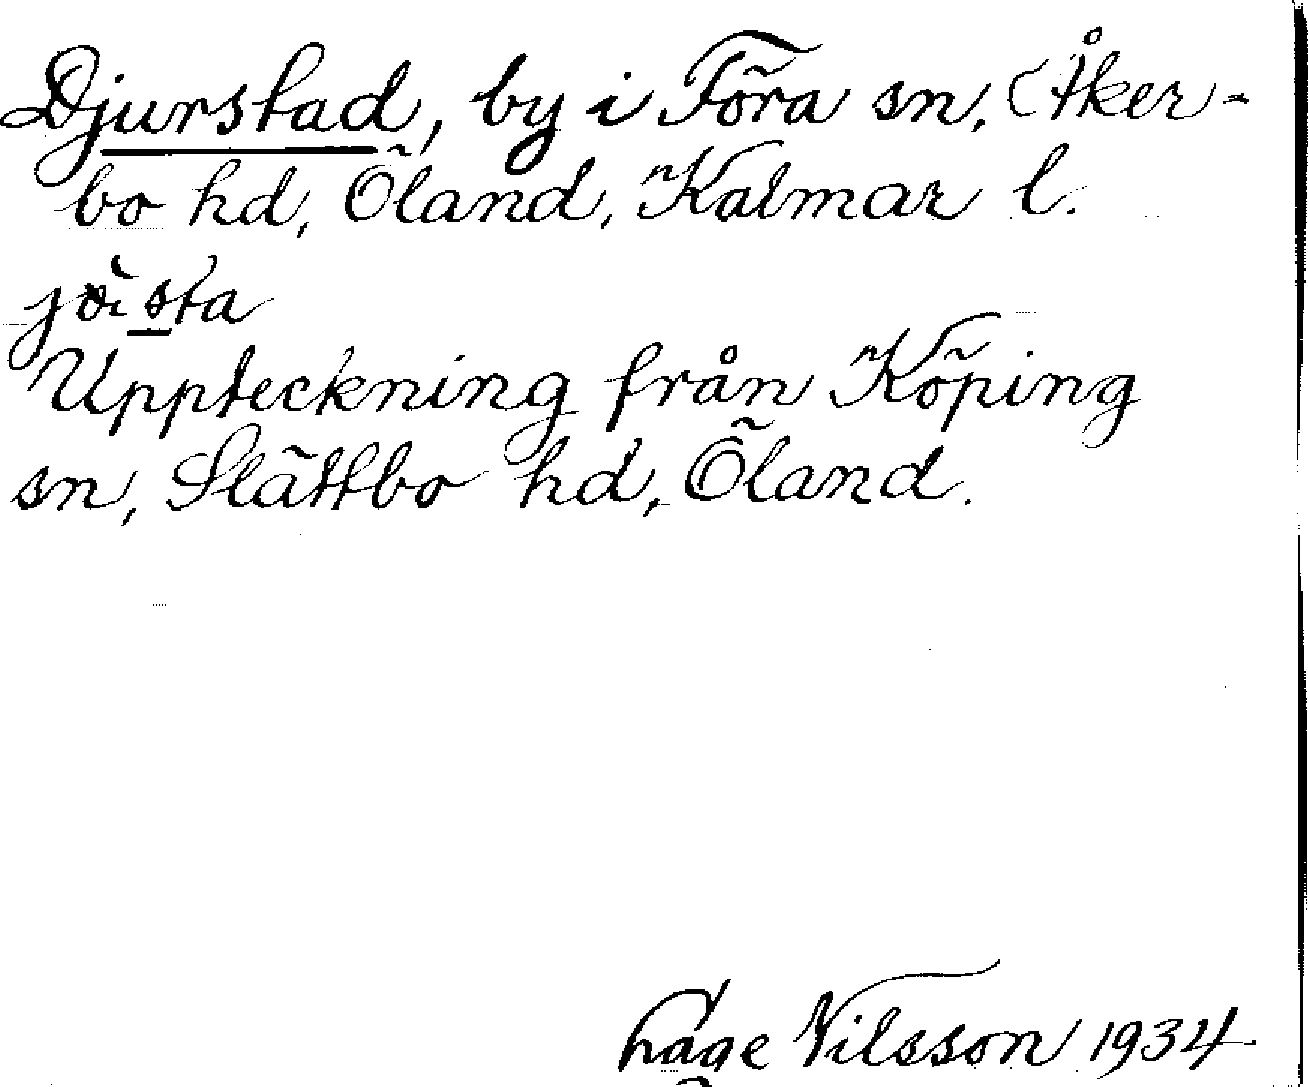 Djurstad, by i Föra sn, Åker-
bo hd, Öland, Kalmar l.
Uppteckning från Köping
sn, Slättbo hd, Öland.
Nilsson 1934